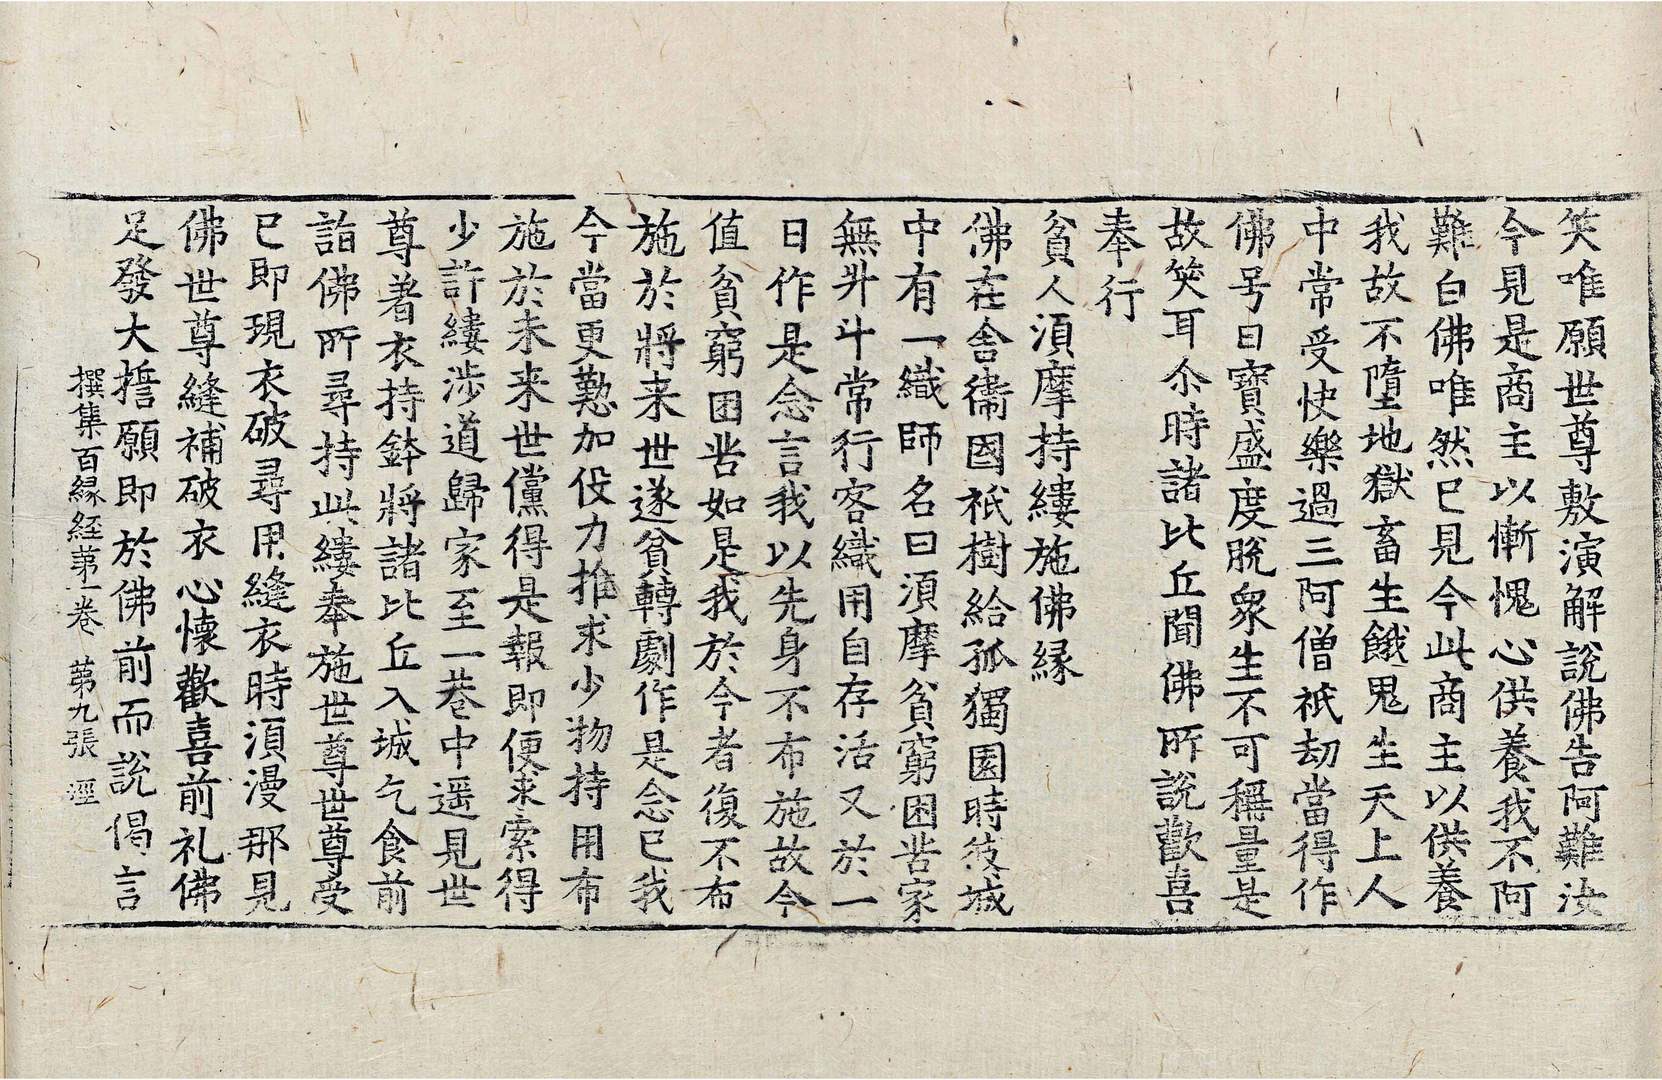 笑唯願世尊敷演解說佛告阿難汝
今見是商主以慚愧心供養我不阿
難白佛唯然已見今此商主以供養
我故不墮地獄畜生餓鬼生天上人
中常受快樂過三阿僧祇劫當得作
佛号曰寶盛度脫衆生不可稱量是
故笑耳尒時諸比丘聞佛所說歡喜
奉行
貧人湏摩持縷施佛縁
佛在舍衛國祇樹給孤獨園時彼城
中有一織師名曰湏摩貧窮困苦家
無升斗常行客織用自存活又於一
日作是念言我以先身不布施故今
值貧窮困苦如是我於今者復不布
施於將来世遂貧轉劇作是念已我
今當更懃加役力推求少物持用布
施於未来世儻得是報即便求索得
少許縷涉道歸家至一巷中遥見世
尊著衣持鉢將諸比丘入城乞食前
詣佛所尋持此縷奉施世尊世尊受
已即現衣破尋用縫衣時湏漫那見
佛世尊縫補破衣心懷歡喜前礼佛
足發大誓願即於佛前而說偈言
撰集百縁経苐一卷 苐九張